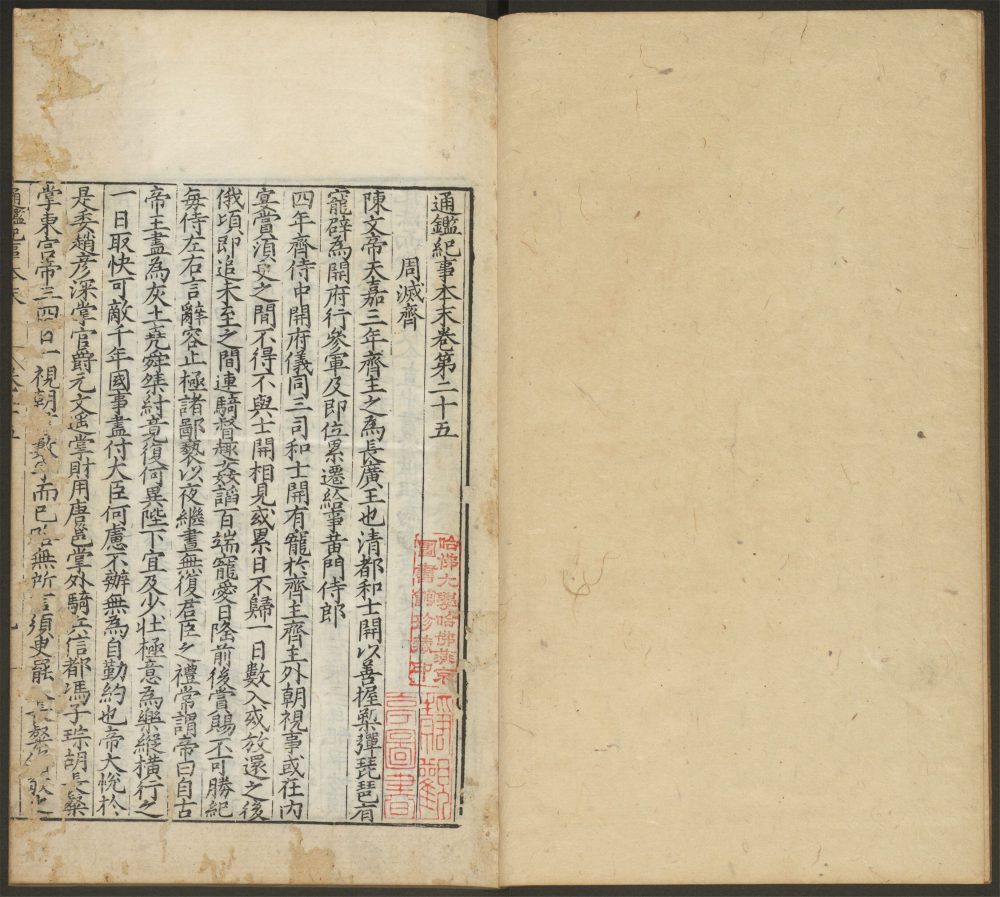 通鑑紀事本末卷第二十五
周滅齊
陳文帝天嘉三年齊主之為長廣王也清都和士開以善握槊彈琵琶有
寵辟為開府行參軍及即位累遷給事黄門侍郎
四年齊侍中開府儀同三司和士開有寵於齊主齊主外朝視事或在内
宴賞須臾之間不得不與士開相見或累日不歸一日數入或放還之後
俄頃即追未至之間連騎督趣姦謟百端寵愛日隆前後賞賜不可勝紀
每侍左右言辭容止極諸鄙褻以夜繼晝無復君臣之禮常謂帝曰自古
帝王盡為灰土堯舜桀紂竟復何異陛下宜及少壯極意為樂縱横行之
一日取快可敵千年國事盡付大臣何慮不辦無為自勤約也帝大悅於
是委趙彦深掌官爵元文遥掌財用唐邕掌外騎兵信都馮子琮胡長粲
掌東宫帝三四日一視朝數字而已無所言須臾罷長粲之
通鑑紀事本末
哈佛大學哈佛燕京
圖書館珍藏印